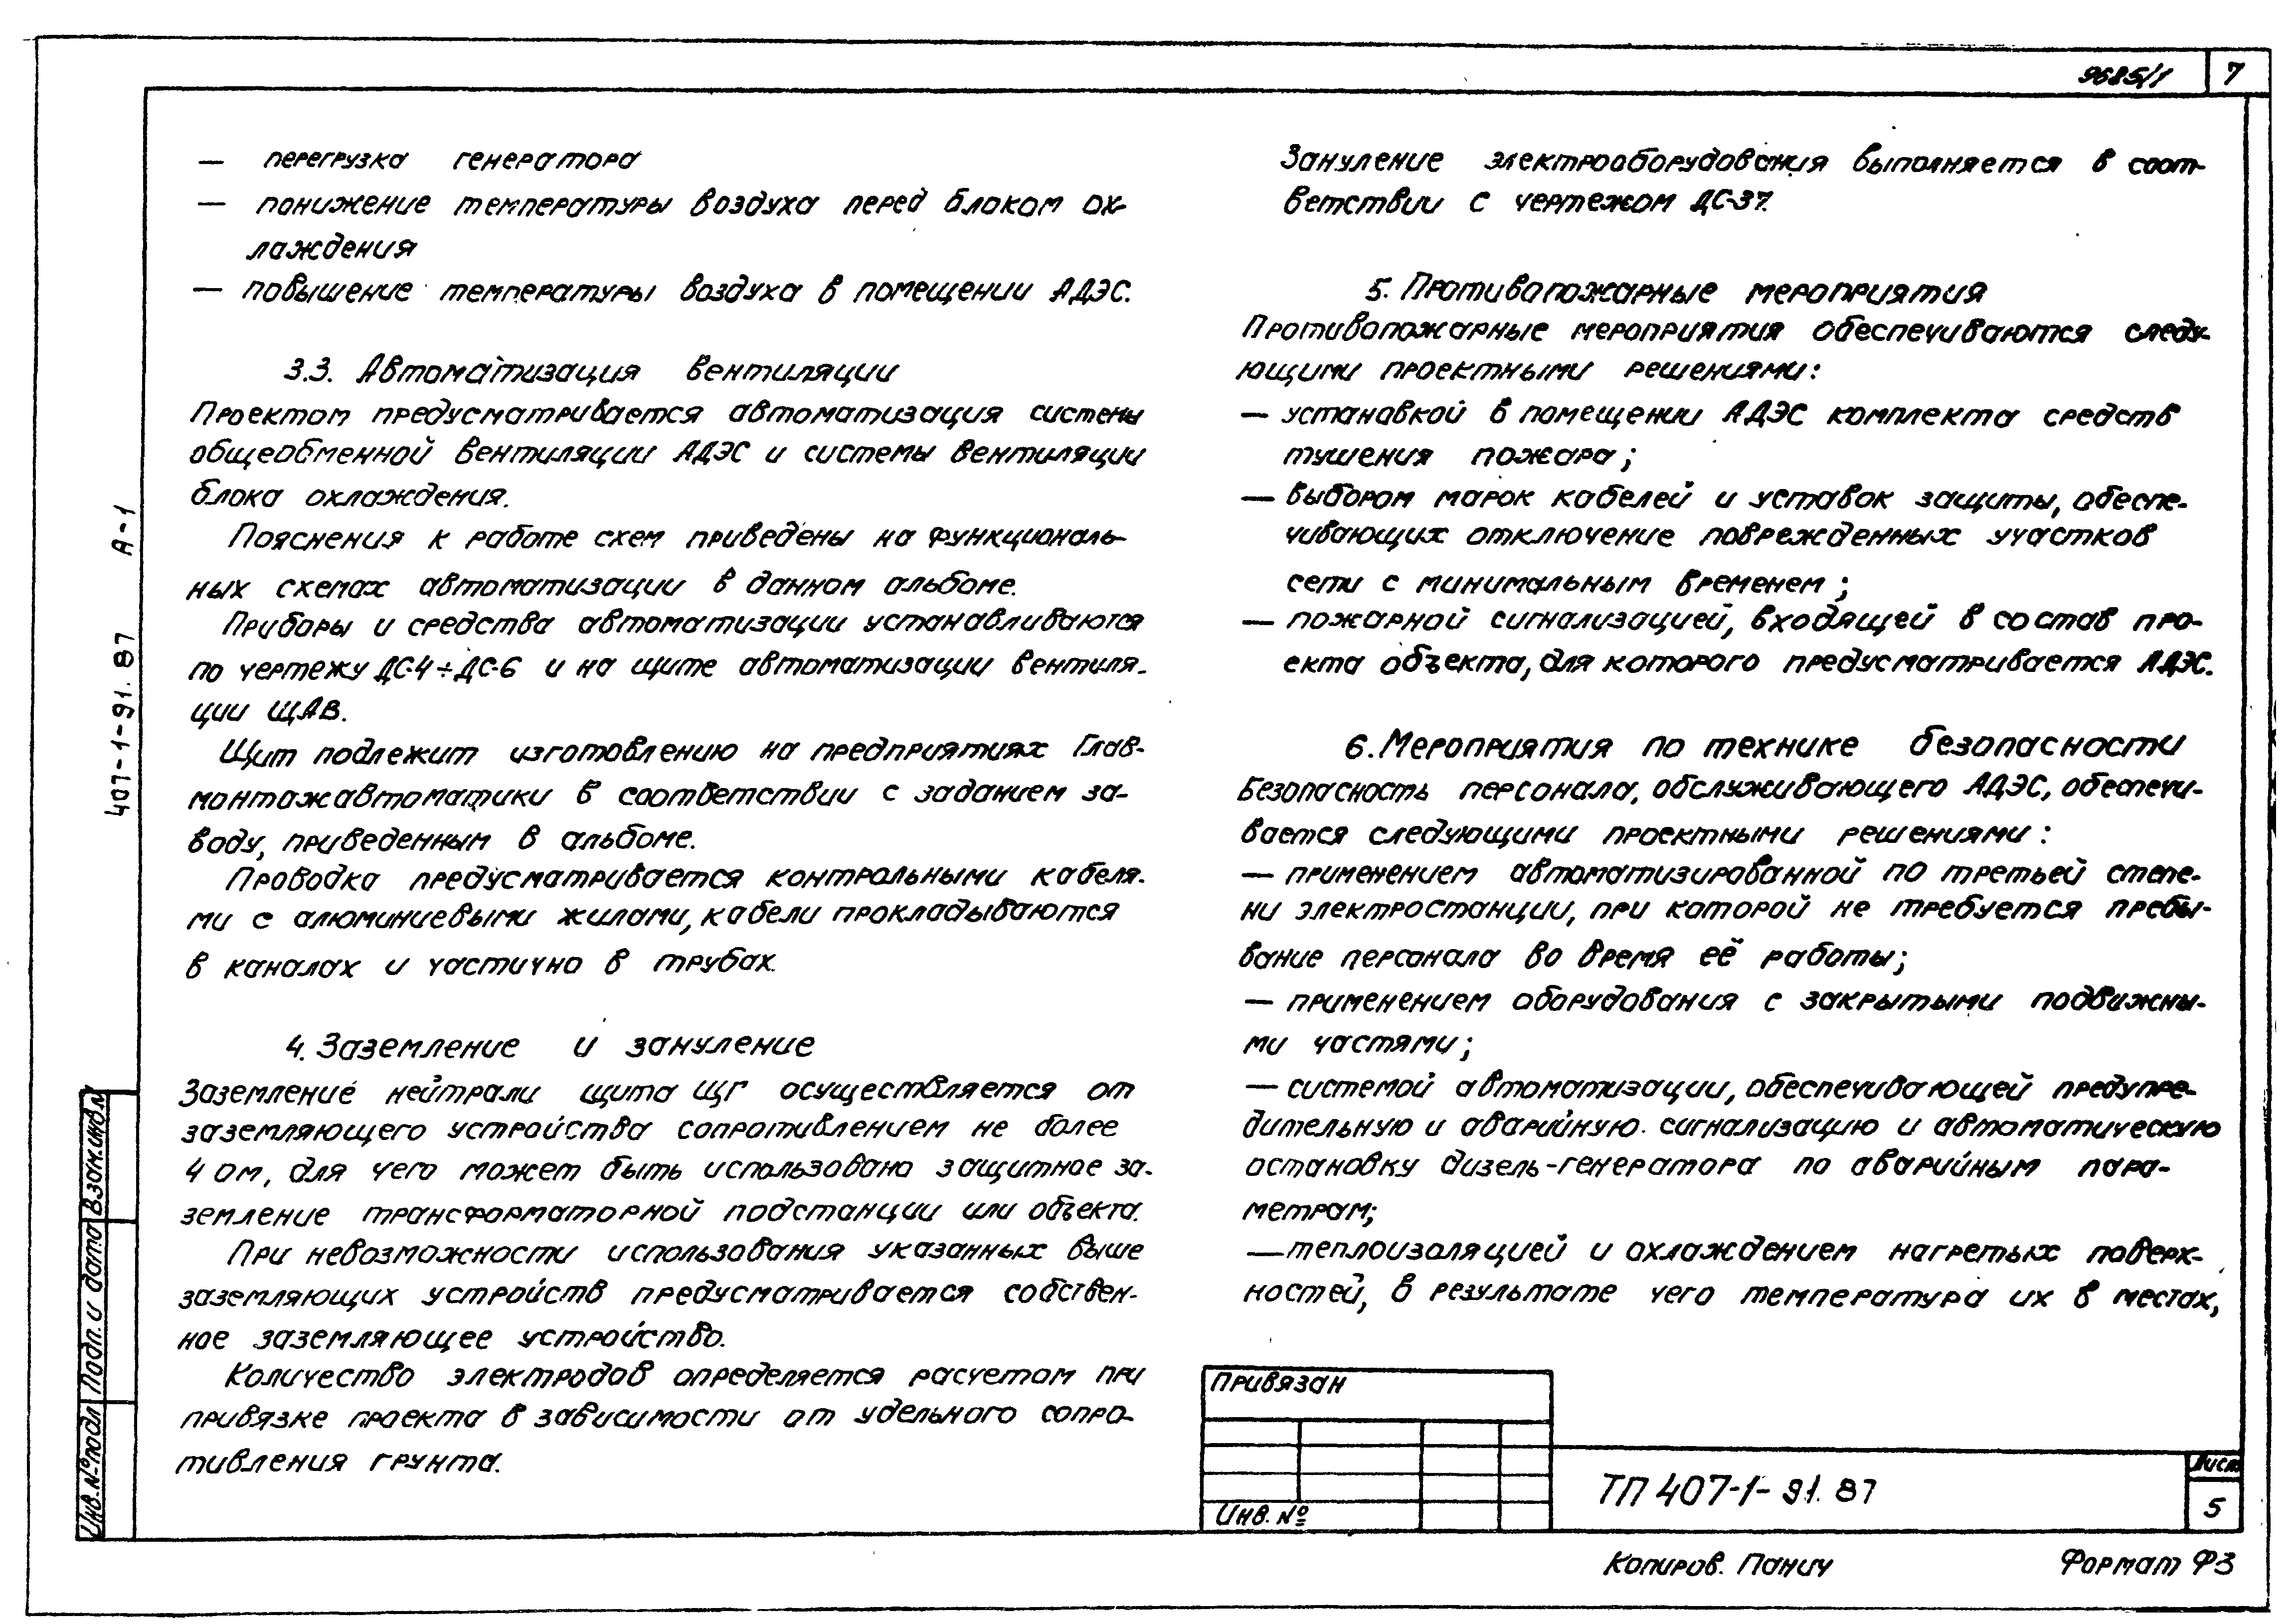 9685/1 7
— перегрузка генератора
— понижение температуры воздуха перед блоком ох-
лаждения
— повышение температуры воздуха в помещении АДЭС.
3.3. Автоматизация вентиляции
Проектом предусматривается автоматизация системы
общеобменной вентиляции АДЭС и системы вентиляции
блока охлаждения.
Пояснения к работе схем приведены на функциональ-
ных схемах автоматизации в данном альбоме.
Приборы и средства автоматизации устанавливаются
по чертежу ДС-4÷ДС-6 и на щите автоматизации вентиля-
ции ЩАВ.
Щит подлежит изготовлению на предприятиях Глав-
монтажавтоматики в соответствии с заданием за-
воду, приведенным в альбоме.
Проводка предусматривается контрольными кабеля-
ми с алюминиевыми жилами, кабели прокладываются
в каналах и частично в трубах.
4. Заземление и зануление
Заземление нейтрали щита ЩГ осуществляется от
заземляющего устройства сопротивлением не более
4 ом, для чего может быть использовано защитное за-
земление трансформаторной подстанции или объекта.
При невозможности использования указанных выше
заземляющих устройств предусматривается собствен-
ное заземляющее устройство.
Количество электродов определяется расчетом при
привязке проекта в зависимости от удельного сопро-
тивления грунта.
Зануление электрооборудования выполняется в соот-
ветствии с чертежом ДС-37.
5. Противопожарные мероприятия
Противопожарные мероприятия обеспечиваются следу-
ющими проектными решениями:
— установкой в помещении АДЭС комплекта средств
тушения пожара;
— выбором марок кабелей и уставок защиты, обеспе-
чивающих отключение поврежденных участков
сети с минимальным временем;
— пожарной сигнализацией, входящей в состав про-
екта объекта, для которого предусматривается АДЭС.
6. Мероприятия по технике безопасности
Безопасность персонала, обслуживающего АДЭС, обеспечи-
вается следующими проектными решениями:
— применением автоматизированной по третьей степе-
ни электростанции, при которой не требуется пребы-
вание персонала во время её работы;
— применением оборудования с закрытыми подвижны-
ми частями;
— системой автоматизации, обеспечивающей предупре-
дительную и аварийную сигнализацию и автоматическую
остановку дизель-генератора по аварийным пара-
метрам;
— теплоизоляцией и охлаждением нагретых поверх-
ностей, в результате чего температура их в местах,
407-1-91.87 А-1
Взам.инв№
Подп. и дата
Инв.№подл
Привязан
Инв. №
ТП 407-1-91.87
Лист
5
Копиров. Панич
Формат Ф3